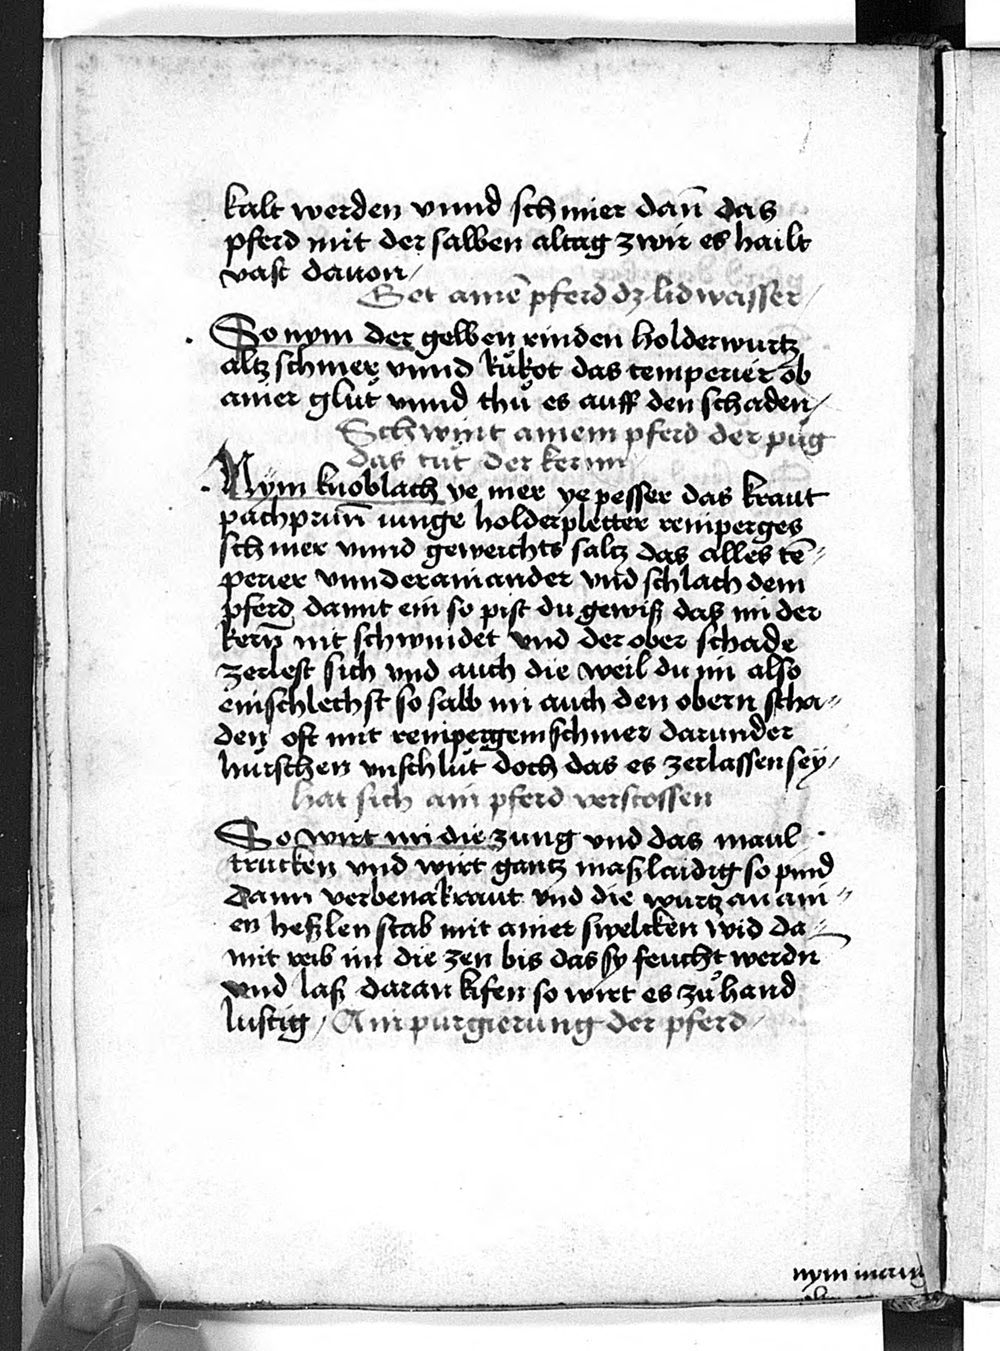 kalt werden vnnd schmier dan̄ das
pferd mit der salben altag zwir es hailt
vast dauon /
Get aine᷉ pferd dz lidwasser /
So nym der gelben rinden holderwurtz
altz schmer vnnd kůkot das temperier ob
ainer glůt vnnd thů es auff den schaden /
Schwint ainem pferd der půg
das tůt der kernn
Nym knoblach ye mer ye pesser das kraut
pachprun̄ iunge holderpletter reinperges
schmer vnnd geweichts saltz das alles te᷉-
perier vnnderainander vnd schlach dem
pferd damit ein so pist du gewiß das im der
kern̄ nit schwindet vnd der ober schade
zerlest sich vnd auch die weil du im also
einschlechst so salb im auch den obern scha-
den oft mit reinpergem schmer darunder
hürschen vnschlüt doch das es zerlassen sey /
hat sich ain pferd verstossen
So wirt im die zung vnd das maul
trucken vnd wirt gantz maßlaidig so pind
dann verbenakraut vnd die wurtz an ain-
en heßlen stab mit ainer swelcken wid da-
mit reib im die zen bis das sy feucht werdn
vnd laß daran kifen so wirt es zůhand
lustig / Ain purgierung der pferd /
nym